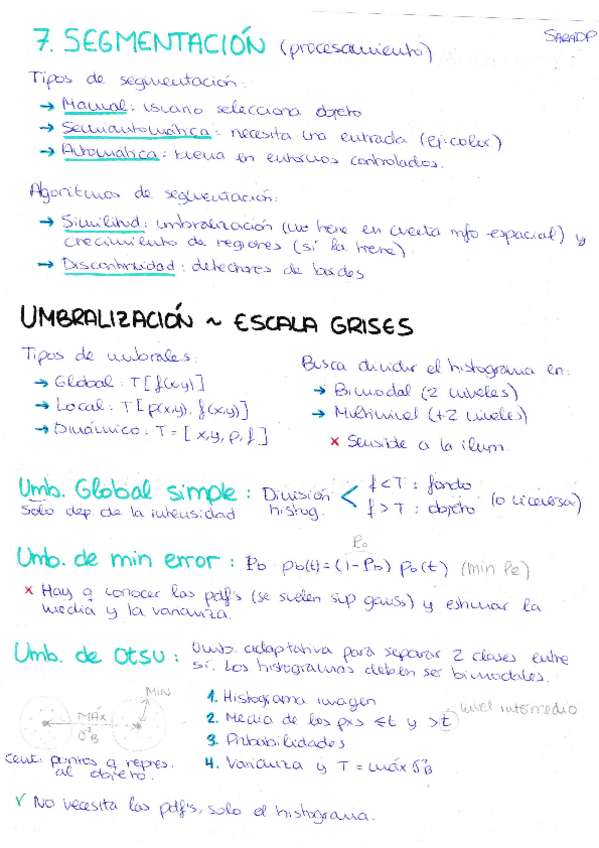 7. SEGMENTACIÓN (procesamiento)
SARADP
Tipos de segmentación:
→ Manual: usuario selecciona objeto
→ Semiautomática: necesita una entrada (ej: color)
→ Automática: buena en entornos controlados.
Algoritmos de segmentación:
→ Similitud: umbralización (no tiene en cuenta info espacial) y
crecimiento de regiones (sí la tiene)
→ Discontinuidad: detectores de bordes
UMBRALIZACIÓN ~ ESCALA GRISES
Tipos de umbrales:
→ Global: T[f(x,y)]
→ Local: T[p(x,y), f(x,y)]
→ Dinámico: T=[x,y,p,f]
Busca dividir el histograma en:
→ Bimodal (2 niveles)
→ Multinivel (+2 niveles)
× Sensible a la ilum.
Umb. Global simple: División < f<T: fondo
Solo dep. de la intensidad histog. f>T: objeto (o viceversa)
Po
Umb. de min error: Pb pb(t)=(1-Pb) po(t) (min Pe)
× Hay q conocer las pdf's (se suelen sup gauss) y estimar la
media y la varianza.
Umb. de Otsu: Umb. adaptativa para separar 2 clases entre
sí. Los histogramas deben ser bimodales.
MIN
MÁX
σ²B
Cent: puntos q repres.
al objeto.
1. Histograma imagen
2. Media de los pxs ≤t y >t nivel intermedio
3. Probabilidades
4. Varianza y T = máx σ²B
√ No necesita las pdf's, solo el histograma.